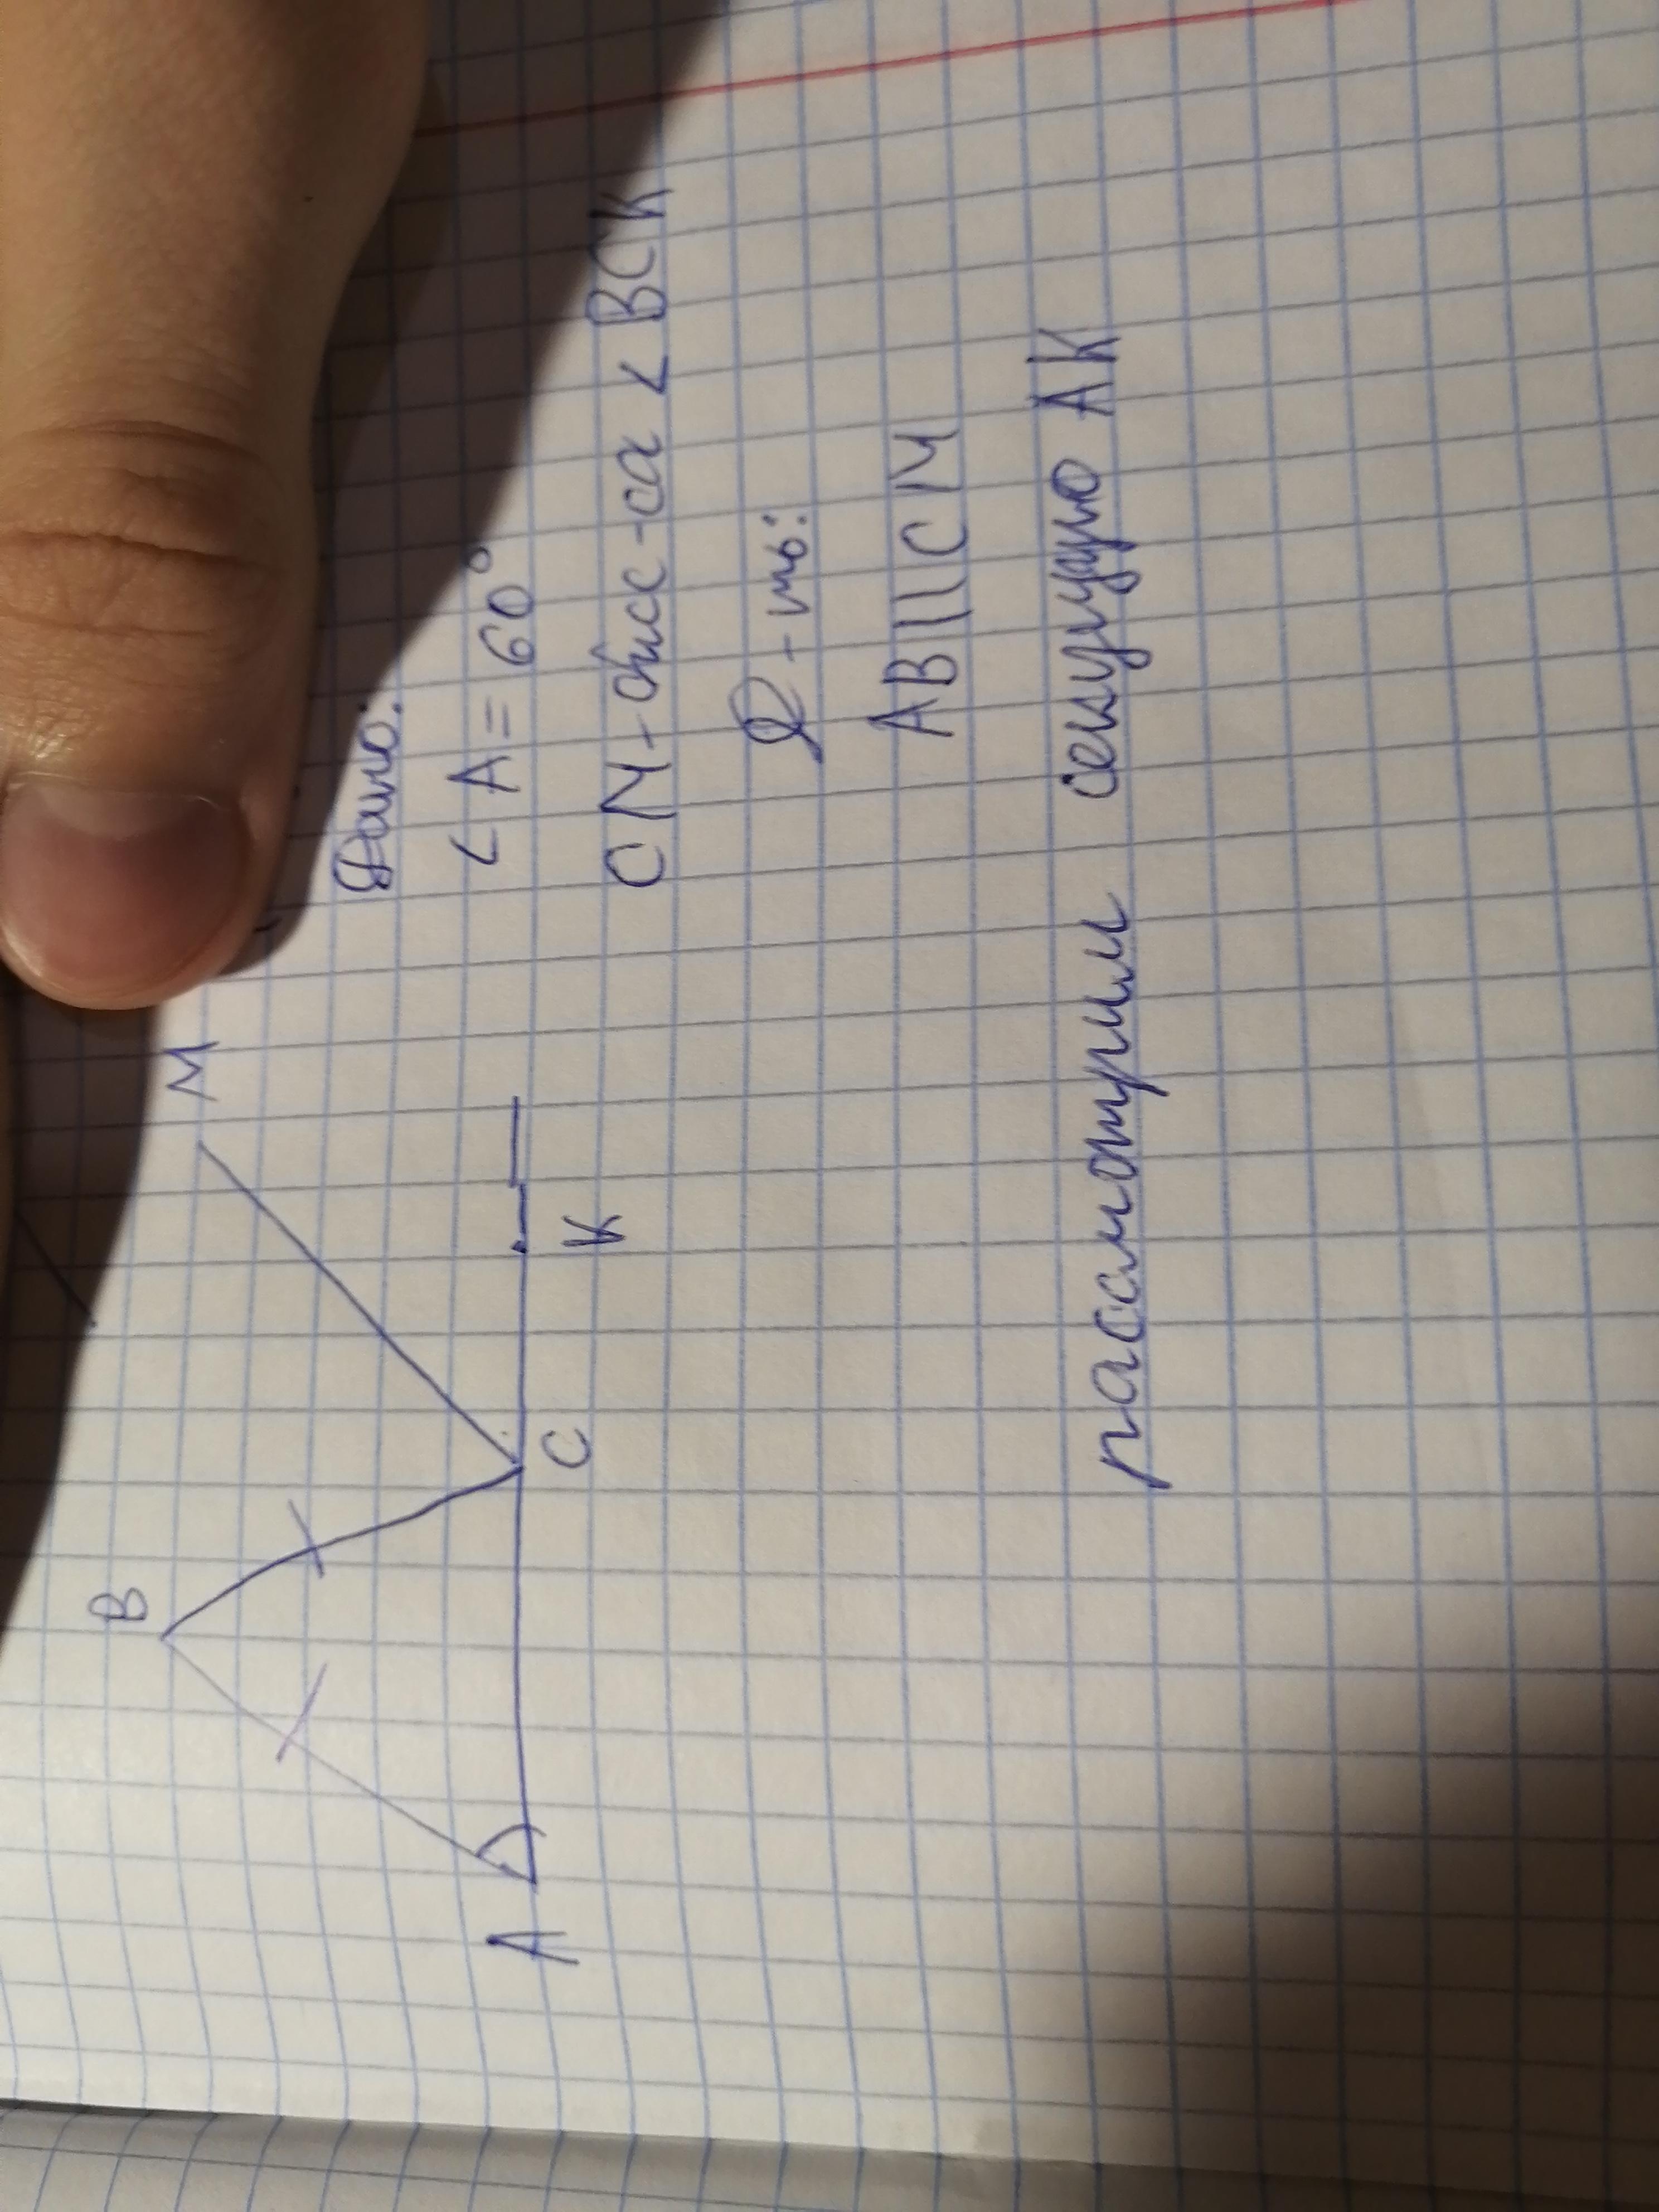 B
M
A
C
K
Дано:
< A = 60°
CM - бисс-са < BCK
Д-ть:
AB || CM
рассмотрим секущую AK